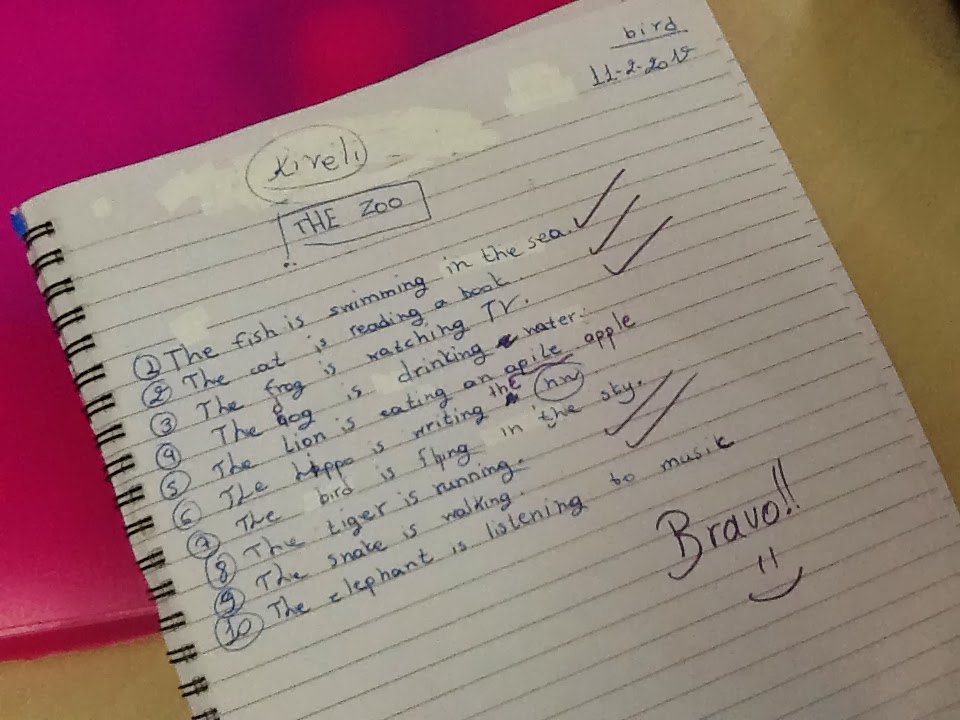 bird
Kiveli
THE ZOO
1 The fish is swimming in the sea.
2 The cat is reading a book.
3 The frog is watching TV.
4 The dog is drinking water.
5 The lion is eating an apile apple
6 The hippo is writing the hw
7 The bird is flying in the sky.
8 The tiger is running.
9 The snake is walking.
10 The elephant is listening to musik
Bravo!!